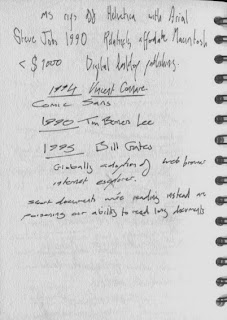 MS rips off Helvetica with Arial
Steve Jobs 1990 Relatively affordable Macintosh
< $1000 Digital desktop publishing.
1994 Vincent Connare
Comic Sans
1990 Tim Berners Lee
1995 Bill Gates
Globally adoption of web browser
internet explorer.
short documents we're reading instead are
poisoning our ability to read long documents